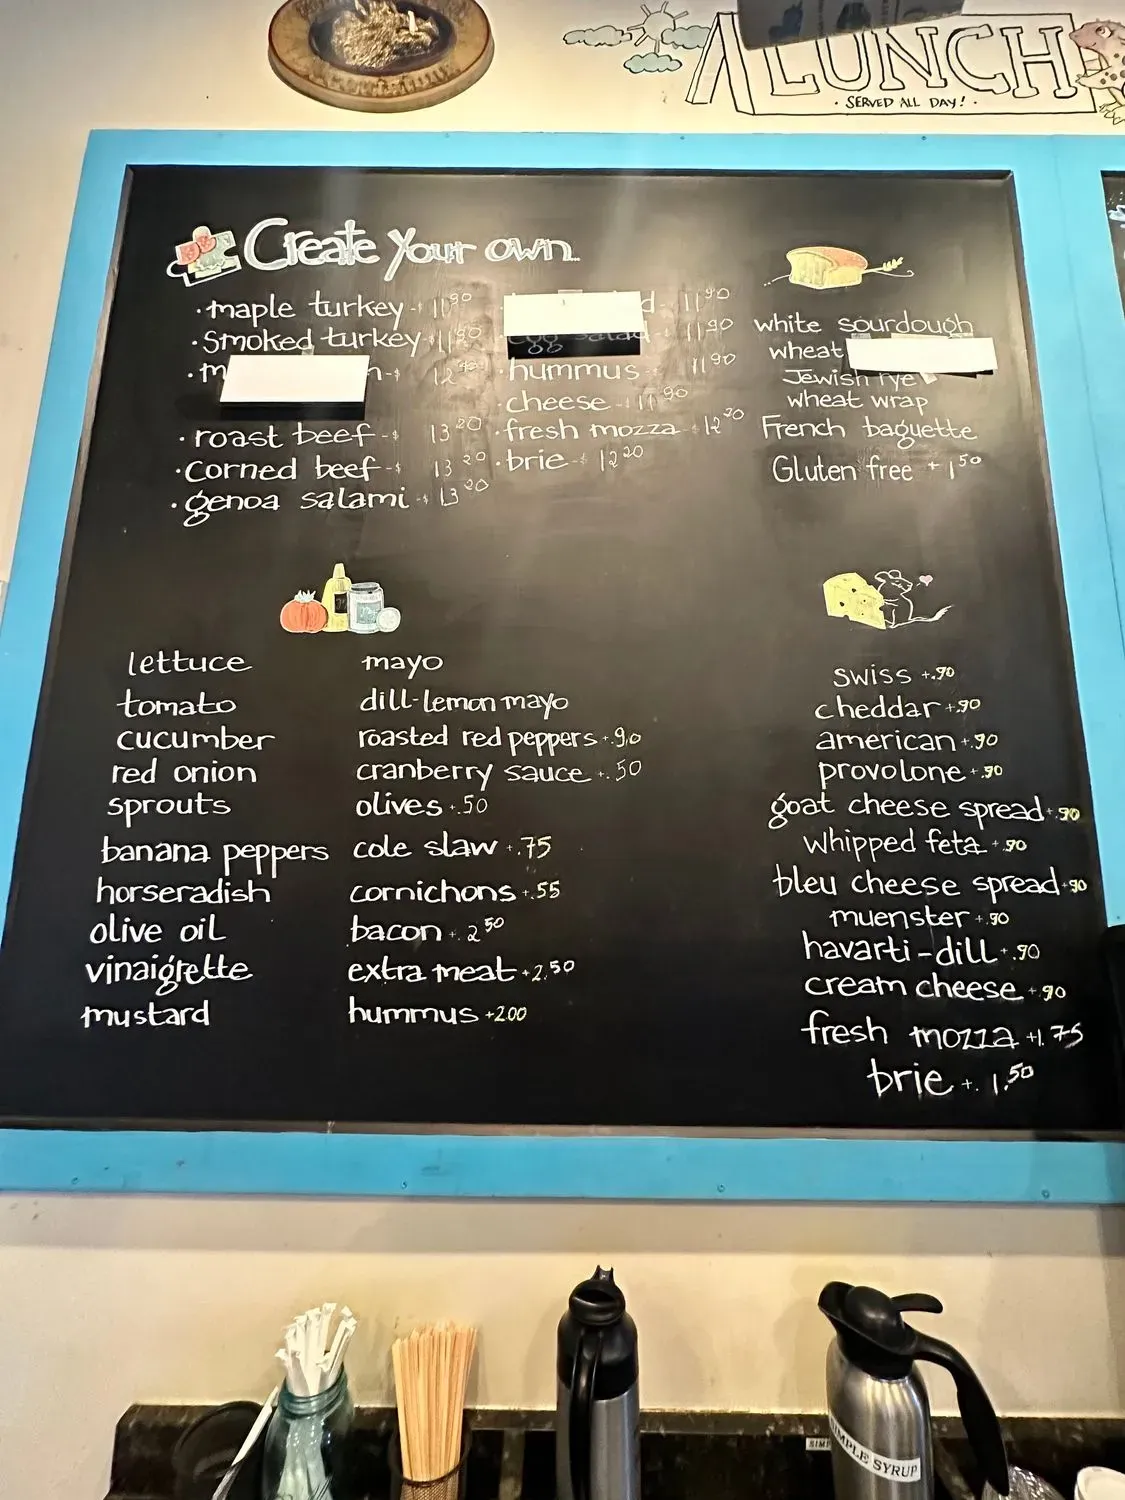 LUNCH
· SERVED ALL DAY! ·
Create Your own
· maple turkey - $ 11.90
· smoked turkey - $ 11.90
12
· roast beef - $ 13.20
· corned beef - $ 13.20
· genoa salami - $ 13.20
11.90
· egg salad - $ 11.90
· hummus - $ 11.90
· cheese - $ 11.90
· fresh mozza - $ 12.20
· brie - $ 12.20
white sourdough
wheat
Jewish rye
wheat wrap
French baguette
Gluten free + 1.50
lettuce
tomato
cucumber
red onion
sprouts
banana peppers
horseradish
olive oil
vinaigrette
mustard
mayo
dill-lemon mayo
roasted red peppers +.90
cranberry sauce +.50
olives +.50
cole slaw +.75
cornichons +.55
bacon + 2.50
extra meat +2.50
hummus +200
swiss +.90
cheddar +.90
american +.90
provolone +.90
goat cheese spread +.90
whipped feta +.90
bleu cheese spread +.90
muenster +.90
havarti-dill +.90
cream cheese +.90
fresh mozza +1.75
brie + 1.50
SIMPLE SYRUP